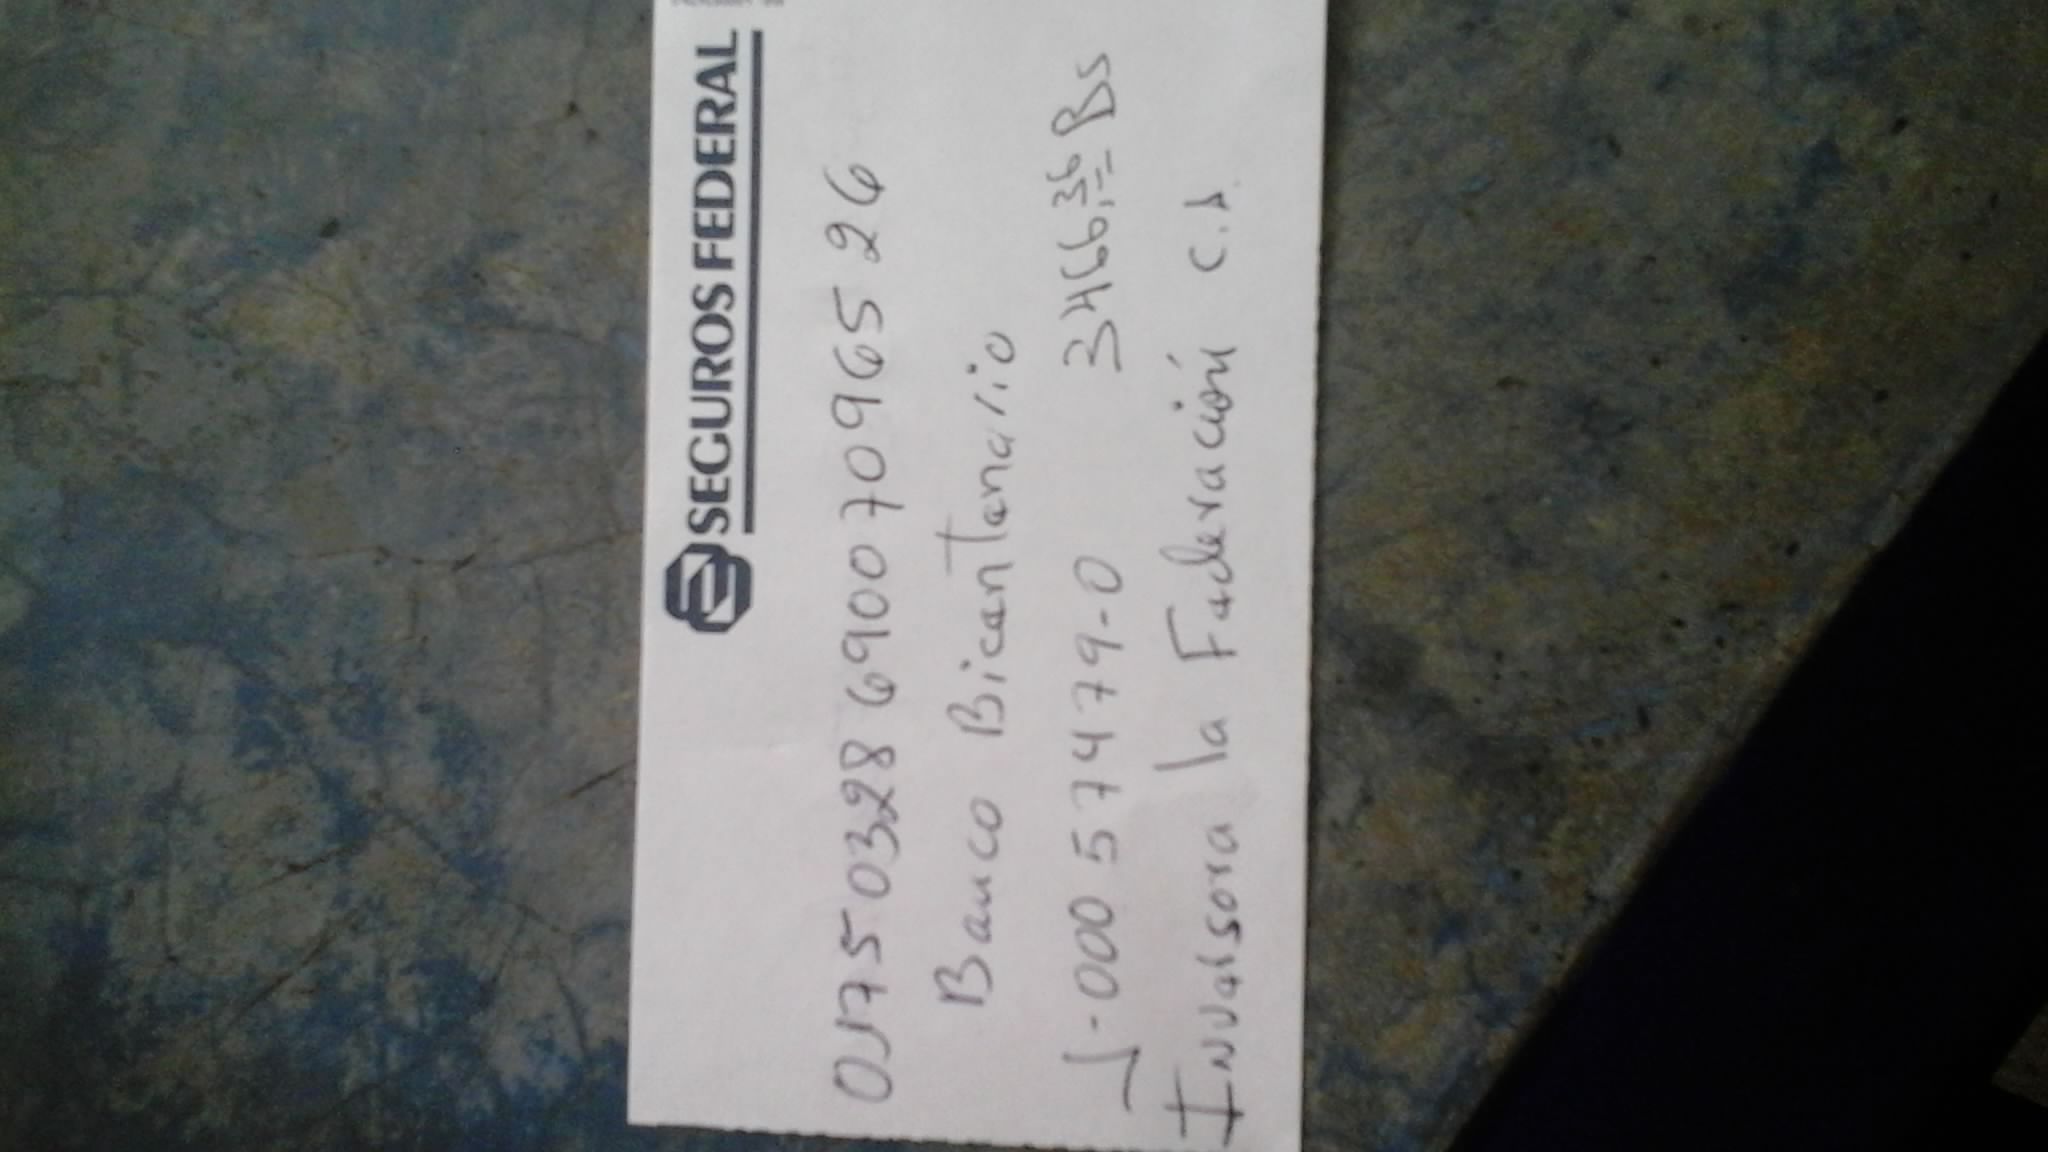 SEGUROS FEDERAL
0175 0328 690070965 26
Banco Bicentenario
J-000 57479-0 3466,36 Bs
Inversora la Federación C.A